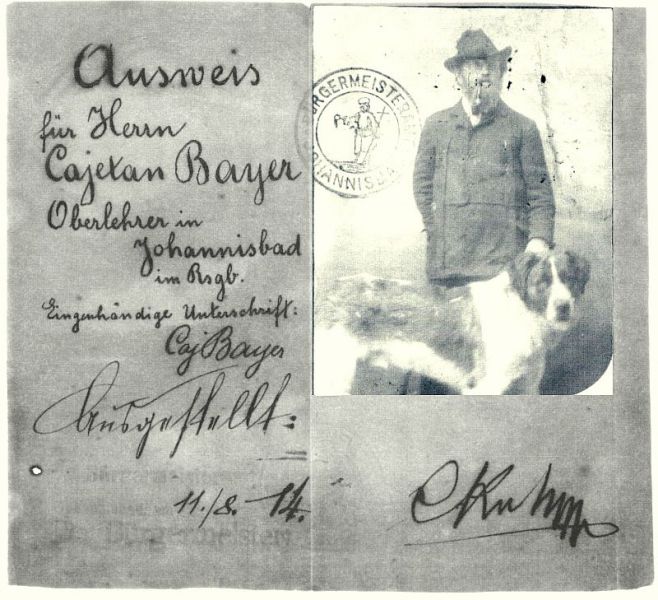 Ausweis
für Herrn
Cajetan Bayer
Oberlehrer in
Johannisbad
im Rsgb.
Eingenhändige Unterschrift:
Caj Bayer
Ausgestellt:
11./8. 14.
Bürgermeister
BÜRGERMEISTERA
JOHANNISBA